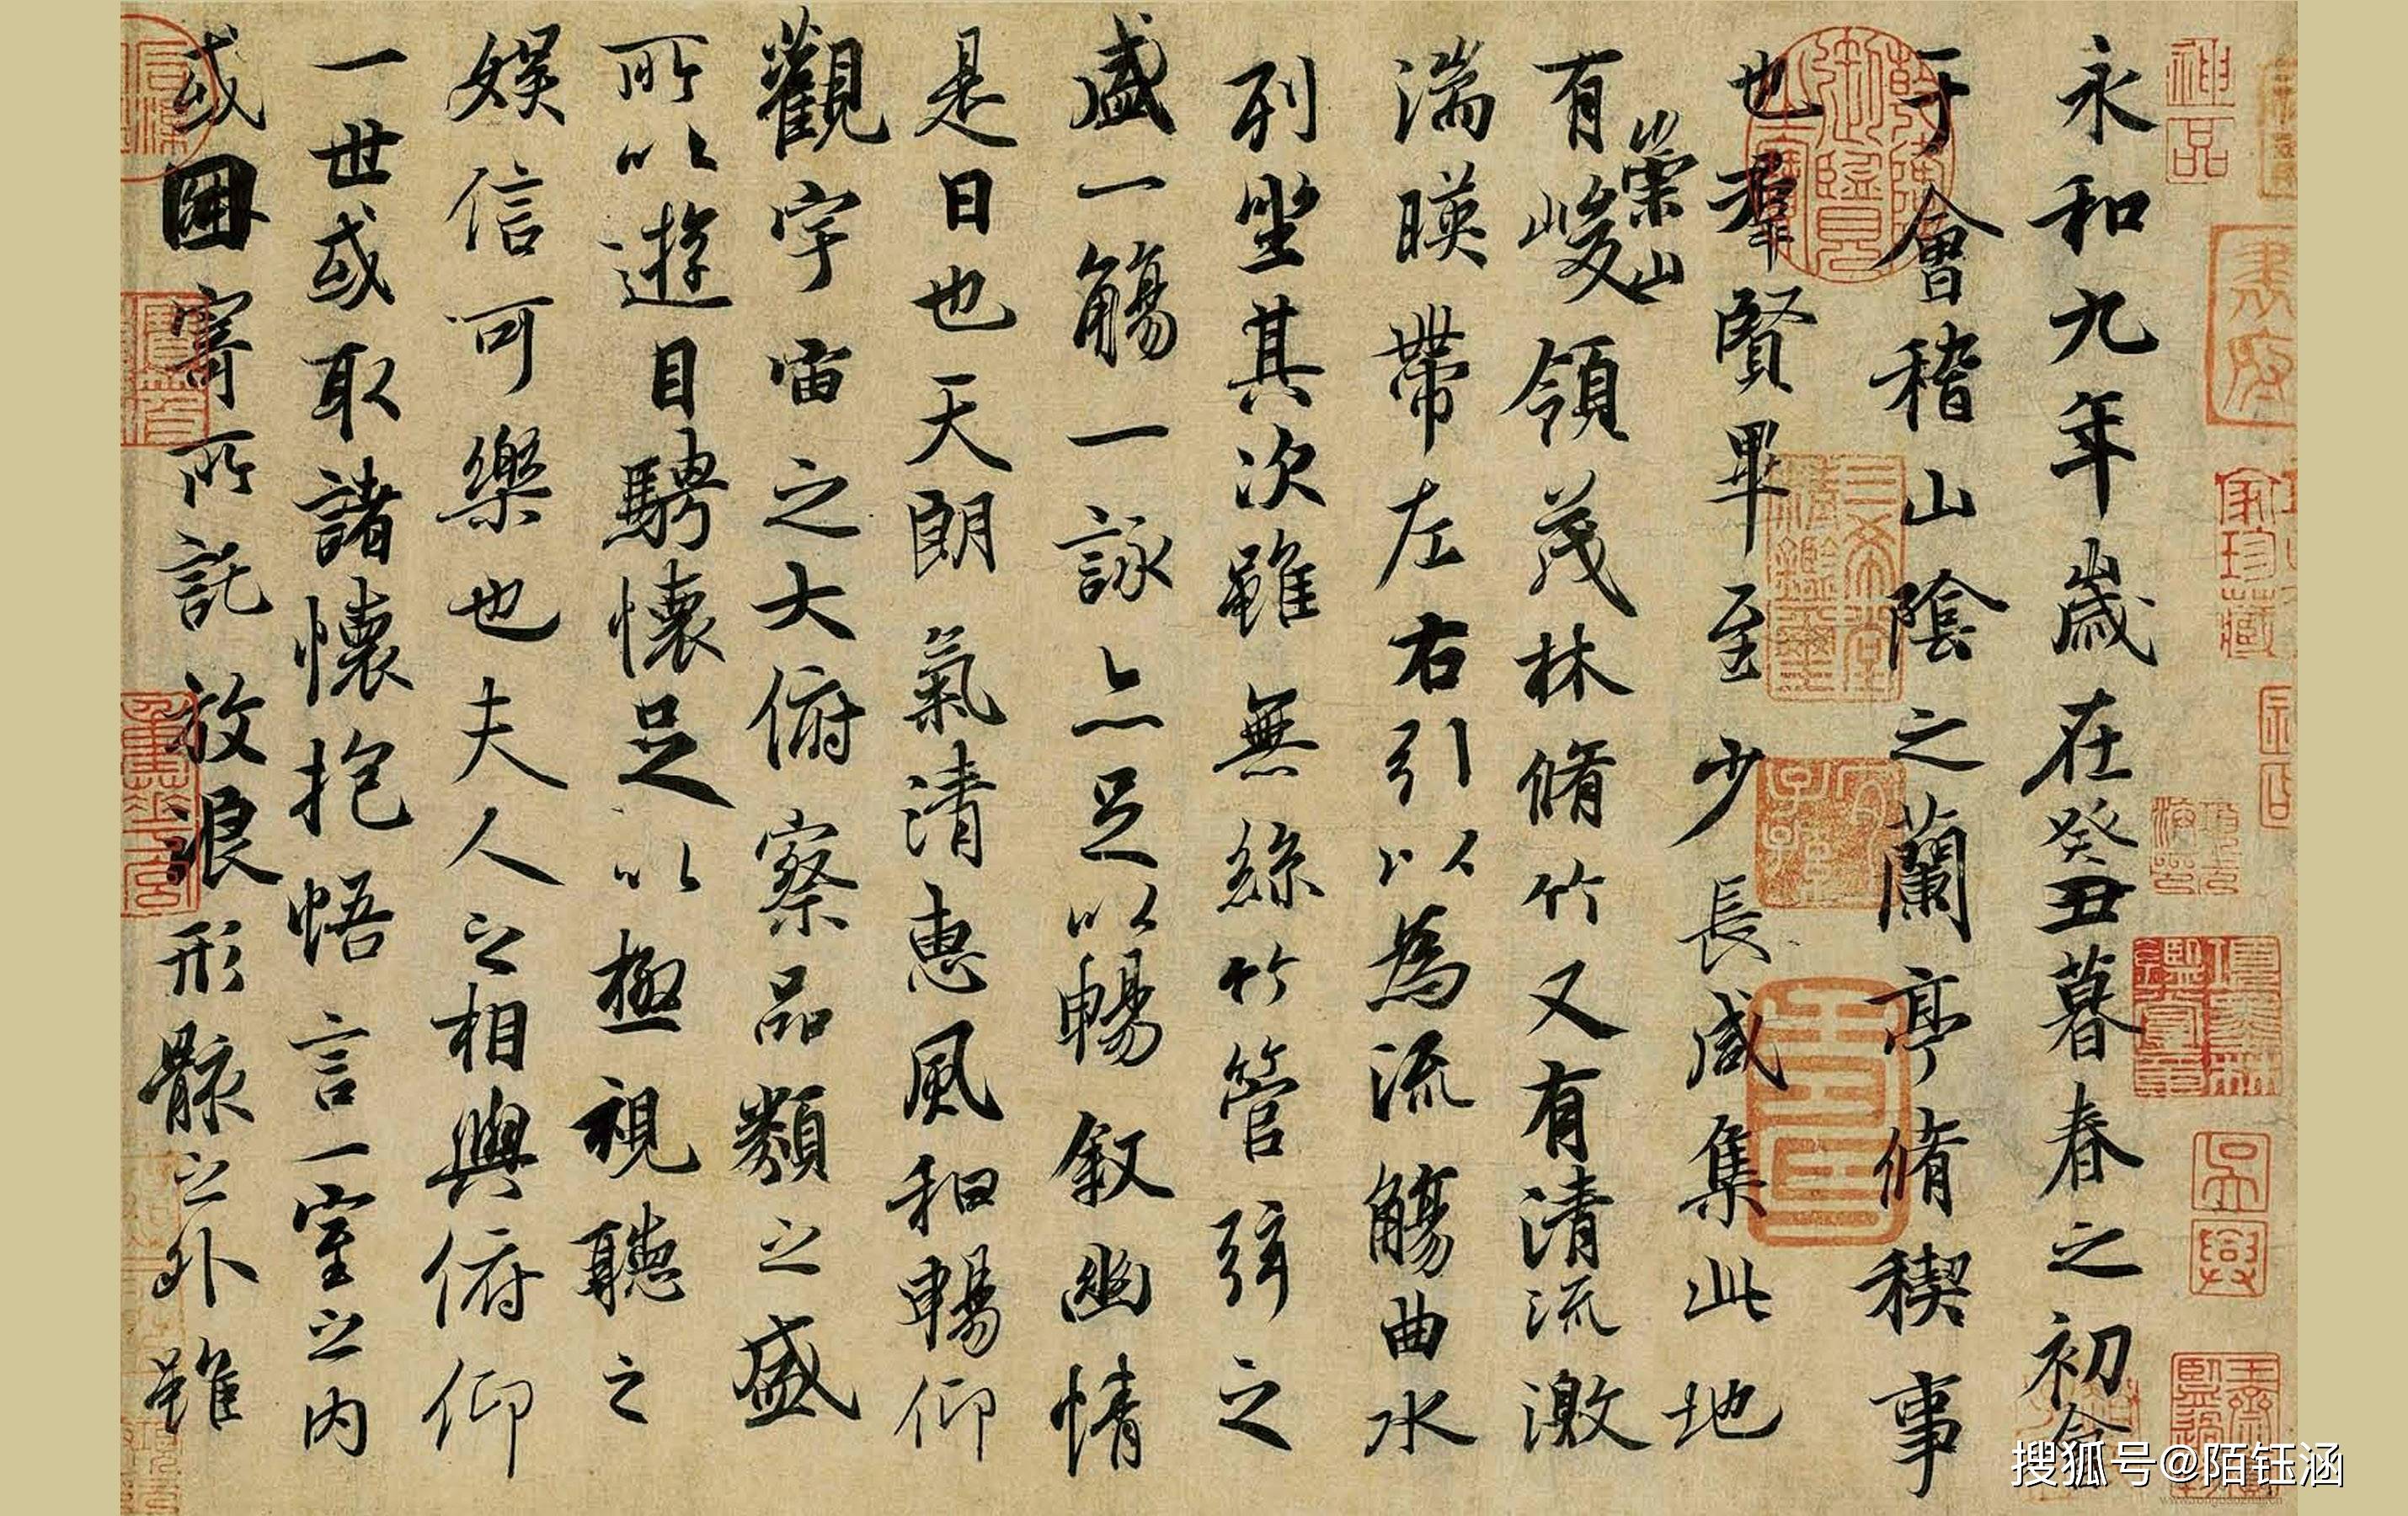 永和九年歲在癸丑暮春之初會
于會稽山陰之蘭亭脩禊事
也羣賢畢至少長咸集此地
有崇山峻領茂林脩竹又有清流激
湍暎帶左右引以為流觴曲水
列坐其次雖無絲竹管弦之
盛一觴一詠亦足以暢敘幽情
是日也天朗氣清惠風和暢仰
觀宇宙之大俯察品類之盛
所以遊目騁懷足以極視聽之
娛信可樂也夫人之相與俯仰
一世或取諸懷抱悟言一室之內
或因寄所託放浪形骸之外雖
神品
吳興
搜狐号@陌钰涵